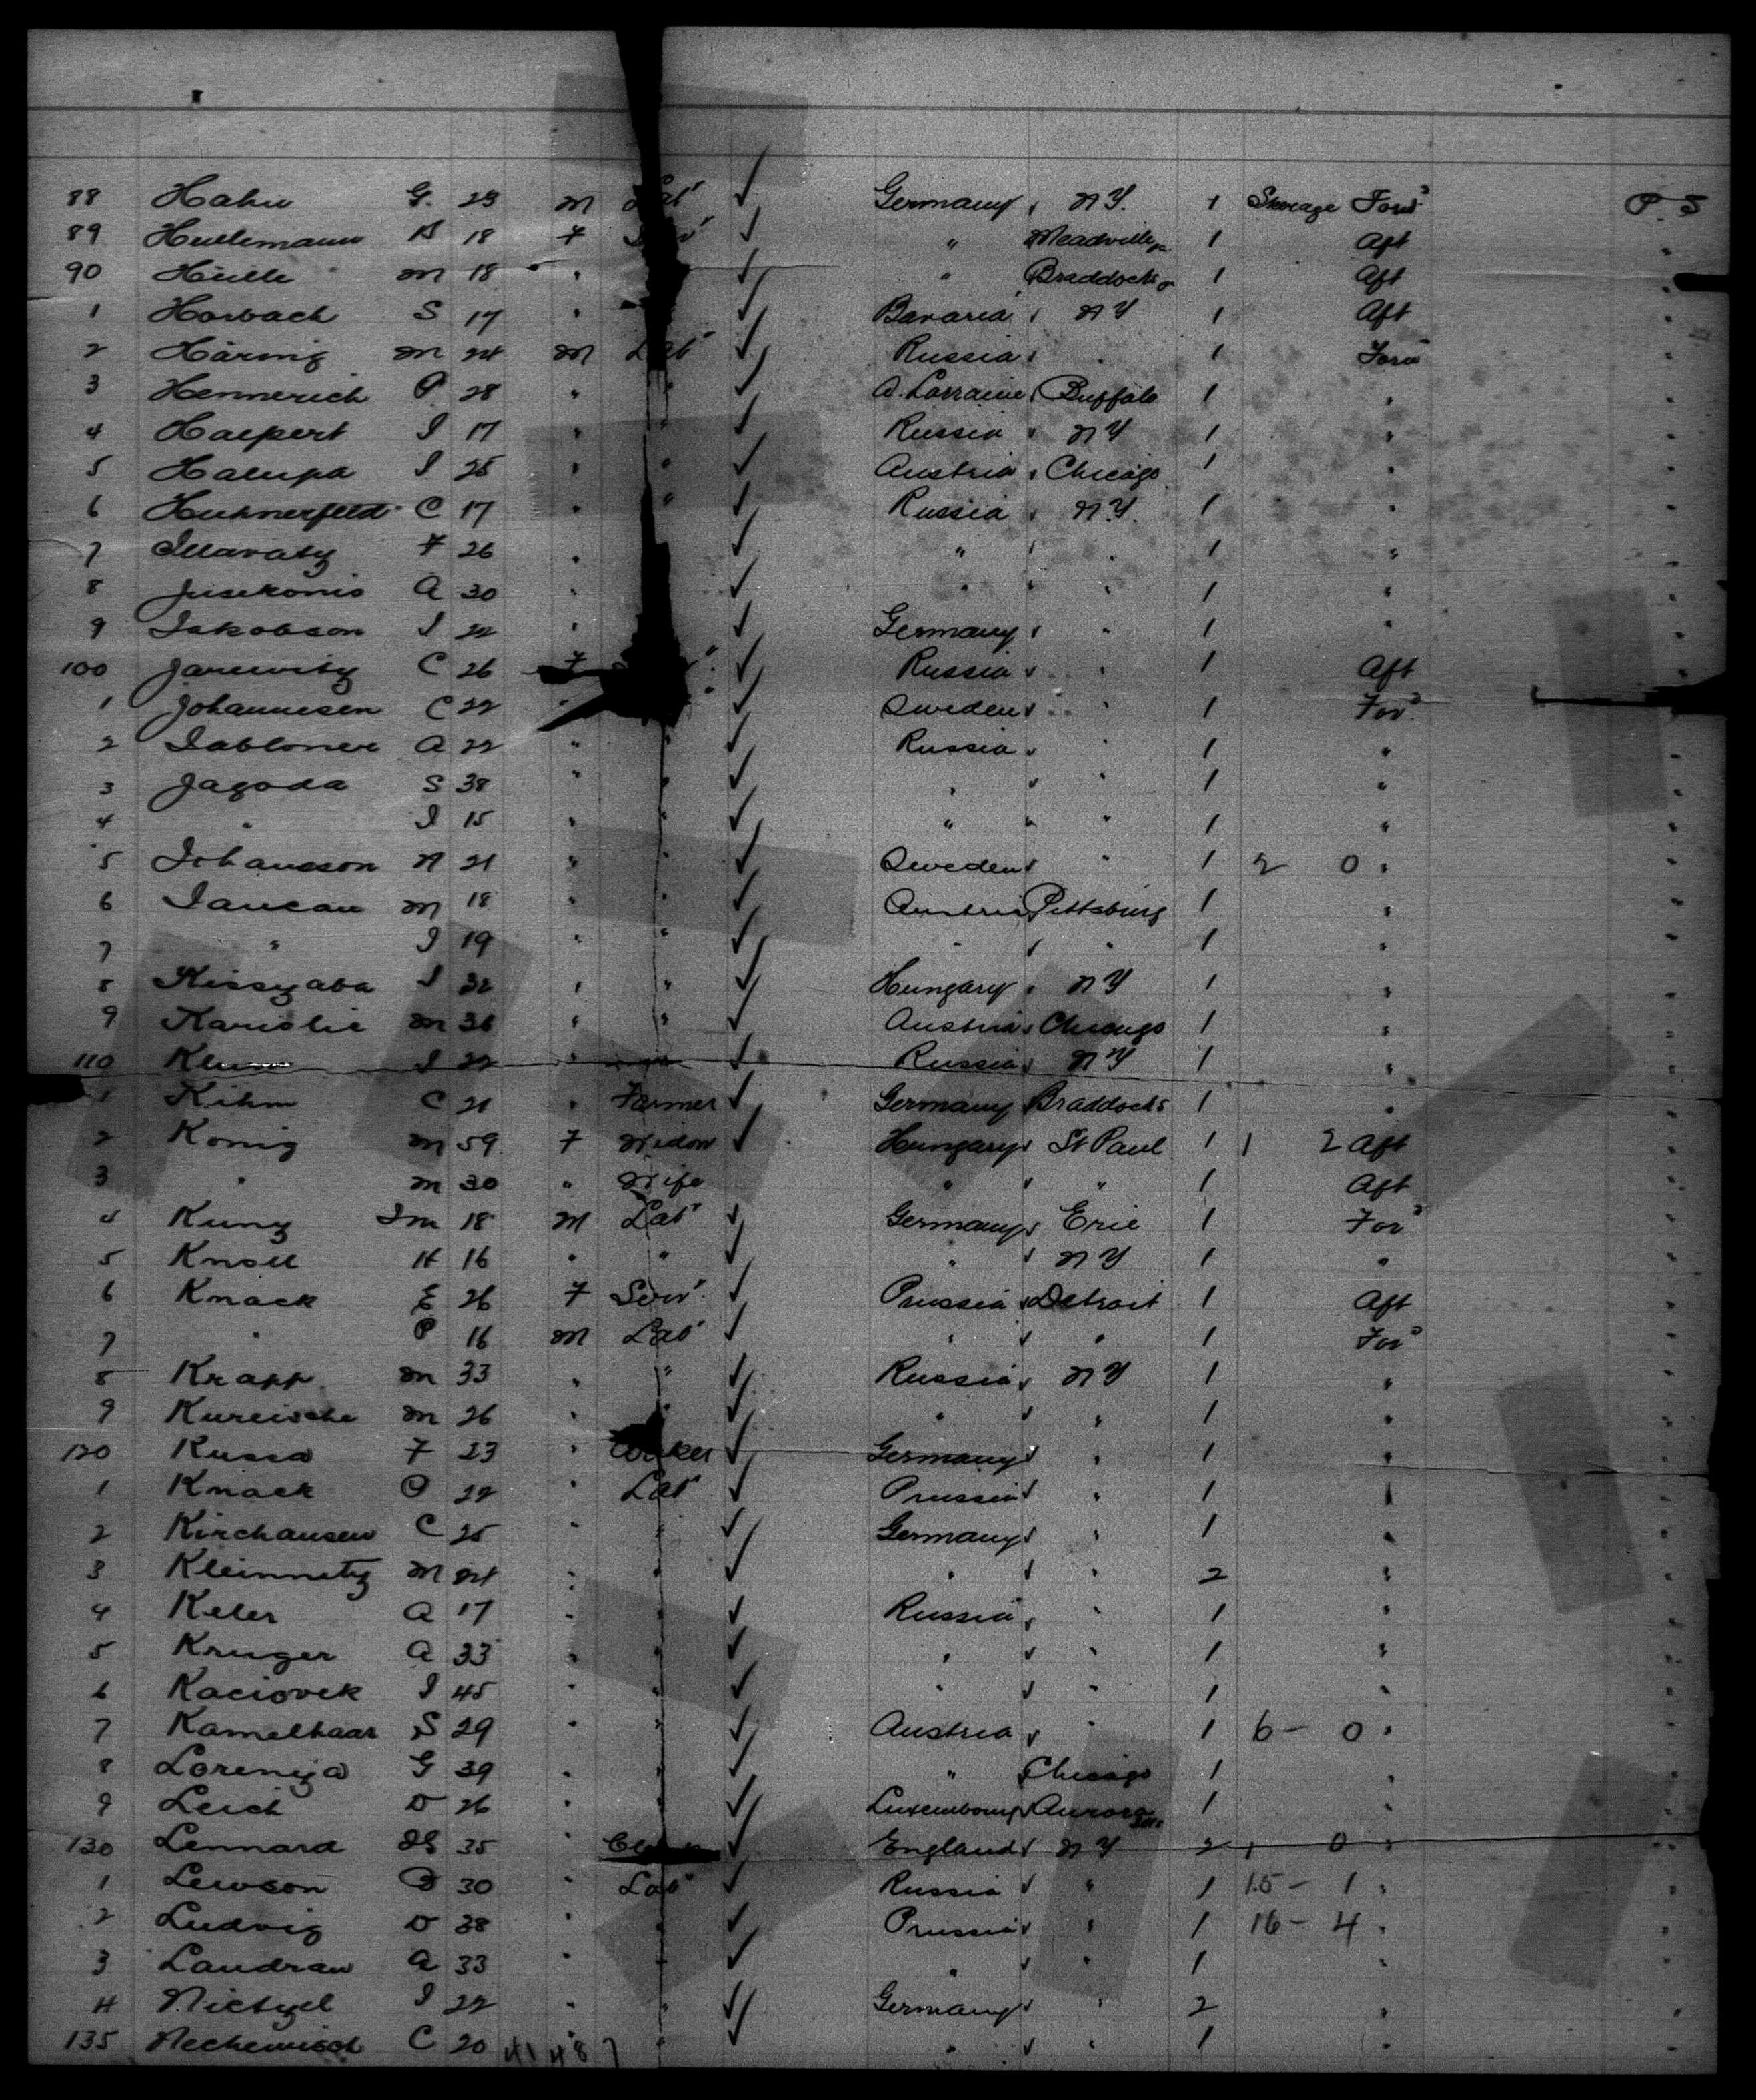 88 Hahn G. 23 m Lab' ✓ Germany, N.Y. 1 Steerage Forw'd P. S
89 Hullemann B 18 F ✓ " Meadville Pa 1 Aft "
90 Hülle m 18 " ✓ " Braddocks 1 Aft "
1 Horbach S 17 " ✓ Bavaria, N Y 1 Aft "
2 Härmig m 24 m Lab' ✓ Russia " 1 Forw "
3 Hennerich P 28 " " ✓ A. Lorraine, Buffalo 1 " "
4 Halpert I 17 " " ✓ Russia N Y 1 " "
5 Halupa I 25 " " ✓ Austria Chicago 1 " "
6 Huhnerfeld C 17 " " ✓ Russia N.Y. 1 " "
7 F 26 " ✓ " " 1 " "
8 Jusekonis A 30 " ✓ " " 1 " "
9 Jakobson I 22 " ✓ Germany " 1 " "
100 Janewitz C 26 F " ✓ Russia " 1 Aft "
1 Johannesen C 22 " ✓ Sweden " 1 For'd "
2 Jabloner A 22 " " ✓ Russia " 1 " "
3 Jagoda S 38 " " ✓ " " 1 " "
4 " I 15 " " ✓ " " 1 " "
5 Johansson N 21 " " ✓ Sweden " 1 2 0 " "
6 Jancau m 18 " " ✓ Austria Pittsburg 1 " "
7 " I 19 " " ✓ " " 1 " "
8 Kisszaba I 32 " " ✓ Hungary N Y 1 " "
9 Karislie m 36 " " ✓ Austria Chicago 1 " "
110 I 22 " ✓ Russia N Y 1 " "
1 Kihm C 21 " Farmer ✓ Germany Braddocks 1 " "
2 Konig m 59 F Widow ✓ Hungary St Paul 1 1 2 Aft "
3 " m 30 " Wife " " 1 Aft "
4 Kunz Im 18 m Lab' ✓ Germany Erie 1 For'd "
5 Knoll H 16 " " ✓ " N Y 1 " "
6 Knack E 26 F Serv' ✓ Prussia Detroit 1 Aft "
7 " P 16 m Lab' ✓ " " 1 For'd "
8 Krapp m 33 " " ✓ Russia N Y 1 " "
9 Kureische m 26 " " ✓ " " 1 " "
120 Kussa F 23 " ✓ Germany " 1 " "
1 Knack O 22 " Lab' ✓ Prussia " 1 " "
2 Kirchausen C 25 " " ✓ Germany " 1 " "
3 Kleinnetz m 24 " " ✓ " " 2 " "
4 Keler A 17 " " ✓ Russia " 1 " "
5 Kruger A 33 " " ✓ " " 1 " "
6 Kaciovek I 45 " " ✓ " " 1 " "
7 Kamelhaar S 29 " " ✓ Austria " 1 6 - 0 " "
8 Lorenzja G 39 " " ✓ " Chicago 1 " "
9 Leich D 26 " " ✓ Luxembourg Aurora Ills 1 " "
130 Lennard 35 " ✓ England N Y 2 1 0 " "
1 Lewson D 30 Lab' ✓ Russia " 1 15 - 1 " "
2 Ludvig D 38 " " ✓ Prussia " 1 16 - 4 " "
3 Laudrau A 33 " " ✓ " " 1 " "
4 Nietzel I 22 " " ✓ Germany " 2 " "
135 Nechemisch C 20 " " ✓ " " 1 " "
41 48 7